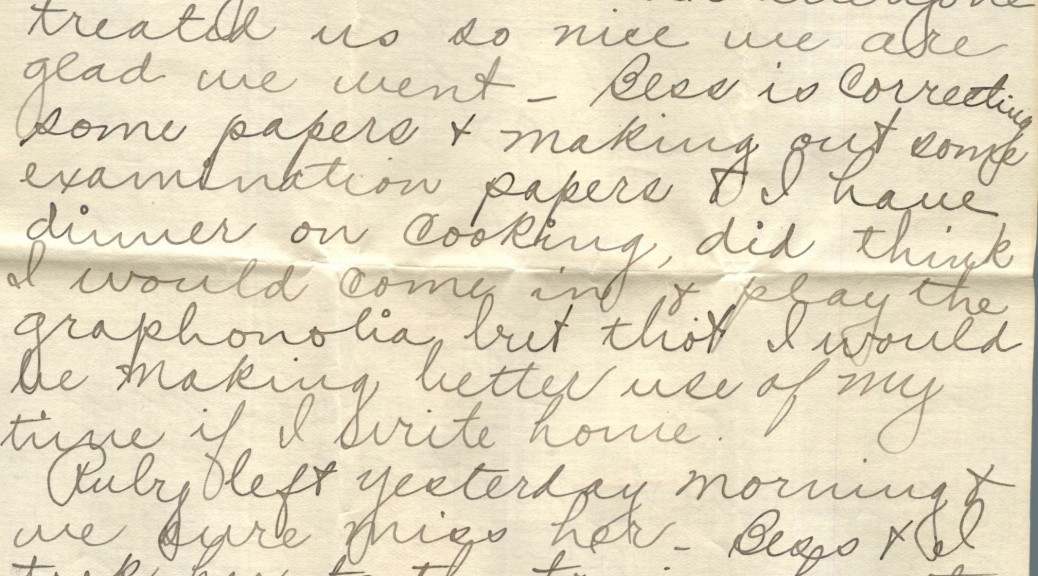 everyone
treated us so nice we are
glad we went - Bess is Correcting
some papers & making out some
examination papers & I have
dinner on Cooking, did think
I would come in & play the
graphonolia but thot I would
be making better use of my
time if I write home.
Ruby left yesterday morning &
we sure miss her - Bess & I
took her to the